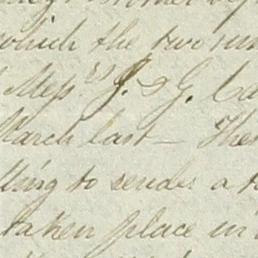 which the two
Mess.rs J. & G. Ca
March last — The
lling to render a
taken place in